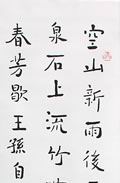 空山新雨後
泉石上流竹
春芳歇王孫自